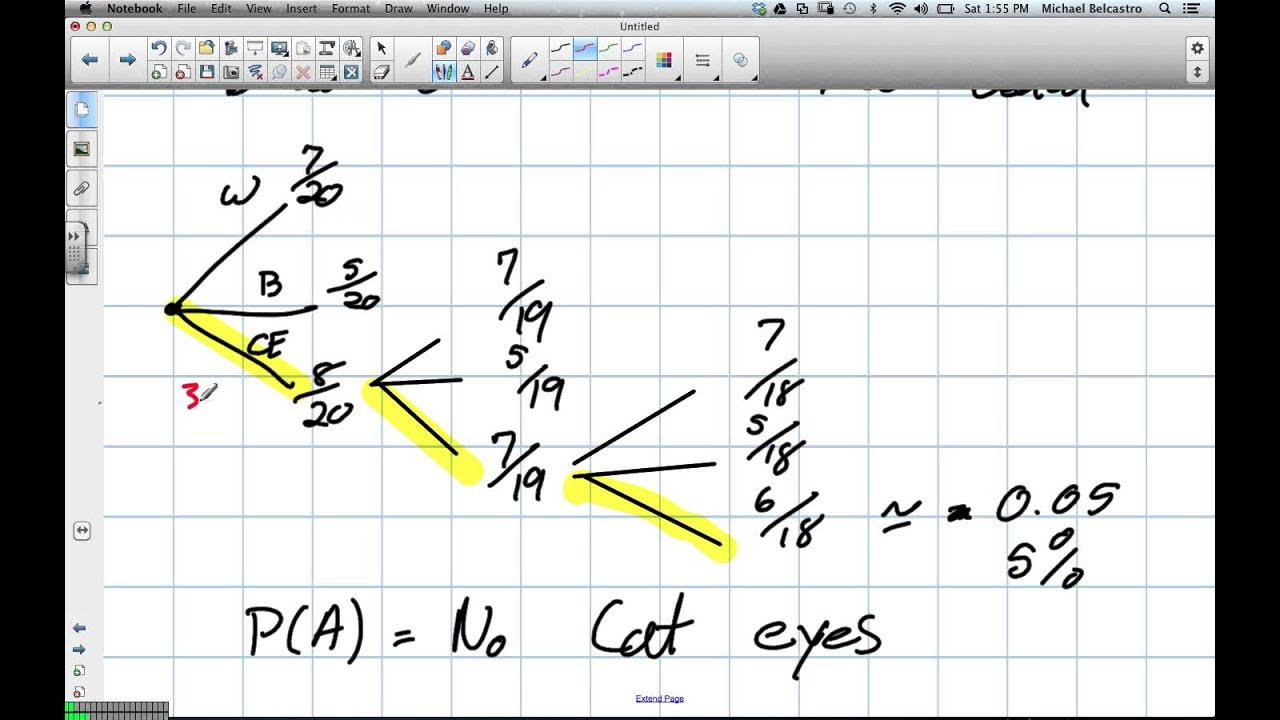 Notebook File Edit View Insert Format Draw Window Help Sat 1:55 PM Michael Belcastro
Untitled
W 7/20
B 5/20
CE 8/20
3
7/19
5/19
7/19
7/18
5/18
6/18 ≃ 0.05
5%
P(A) = No Cat eyes
Extend Page